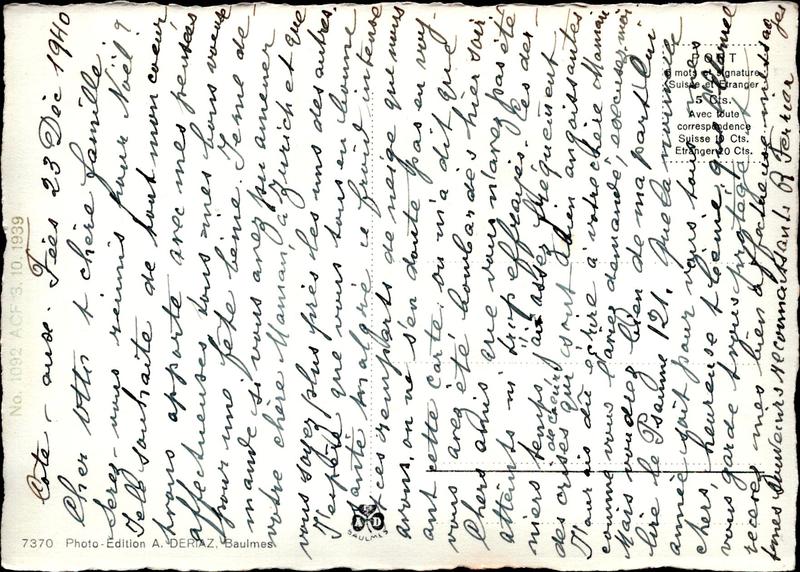 Cote - aux - Fées 23 Déc 1940
Cher Otto & chère famille!
Serez-vous réunis pour Noël?
Je le souhaite de tout mon coeur
vous apporte avec mes pensées
affectueuses tous mes bons voeux
pour une fête bénie. Je me de-
mande si vous avez pu amener
votre chère Maman à Zurich et que
vous soyez plus près les uns des autres.
J'espère que vous tous en bonne
santé malgré ce froid intense
& ces remparts de neige que nous
avons, on ne s'en doute pas en voy-
ant cette carte. On m'a dit que
vous avez été bombardés hier soir
Chers amis que vous n'avez pas été
atteints ni trop effrayés. Ces der-
niers temps j'ai assez fréquemment
de coeur
des crises qui sont bien angoissantes!
J'aurais dû écrire à votre chère Maman
comme vous l'avez demandé, excusez-moi
Mais voudrez bien de ma part lui
lire le Psaume 121. Que la nouvelle
année soit pour vous tous, mes
chers, heureuse & bénie, que l'Eternel
vous garde & vous protège &
recevez mes bien affectueux messages
& mes souvenirs reconnaissants R Ferrier
No. 1092 ACF 3.10.1939
7370 Photo-Edition A. DERIAZ, Baulmes
BAULMES
PORT
5 mots et signature
Suisse et Etranger
5 Cts.
Avec toute
correspondence
Suisse 10 Cts.
Etranger 20 Cts.